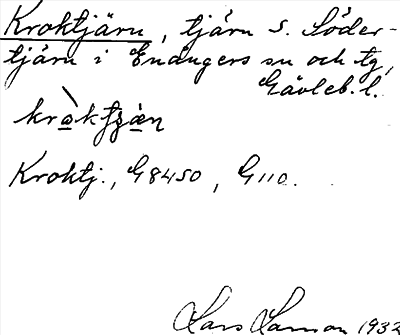 Kroktjärn, tjärn S. Söder-
tjärn i Enångers sn och tg,
Gävleb. l.
Kroktj., G8450, G110.
Lars Larsson 1932